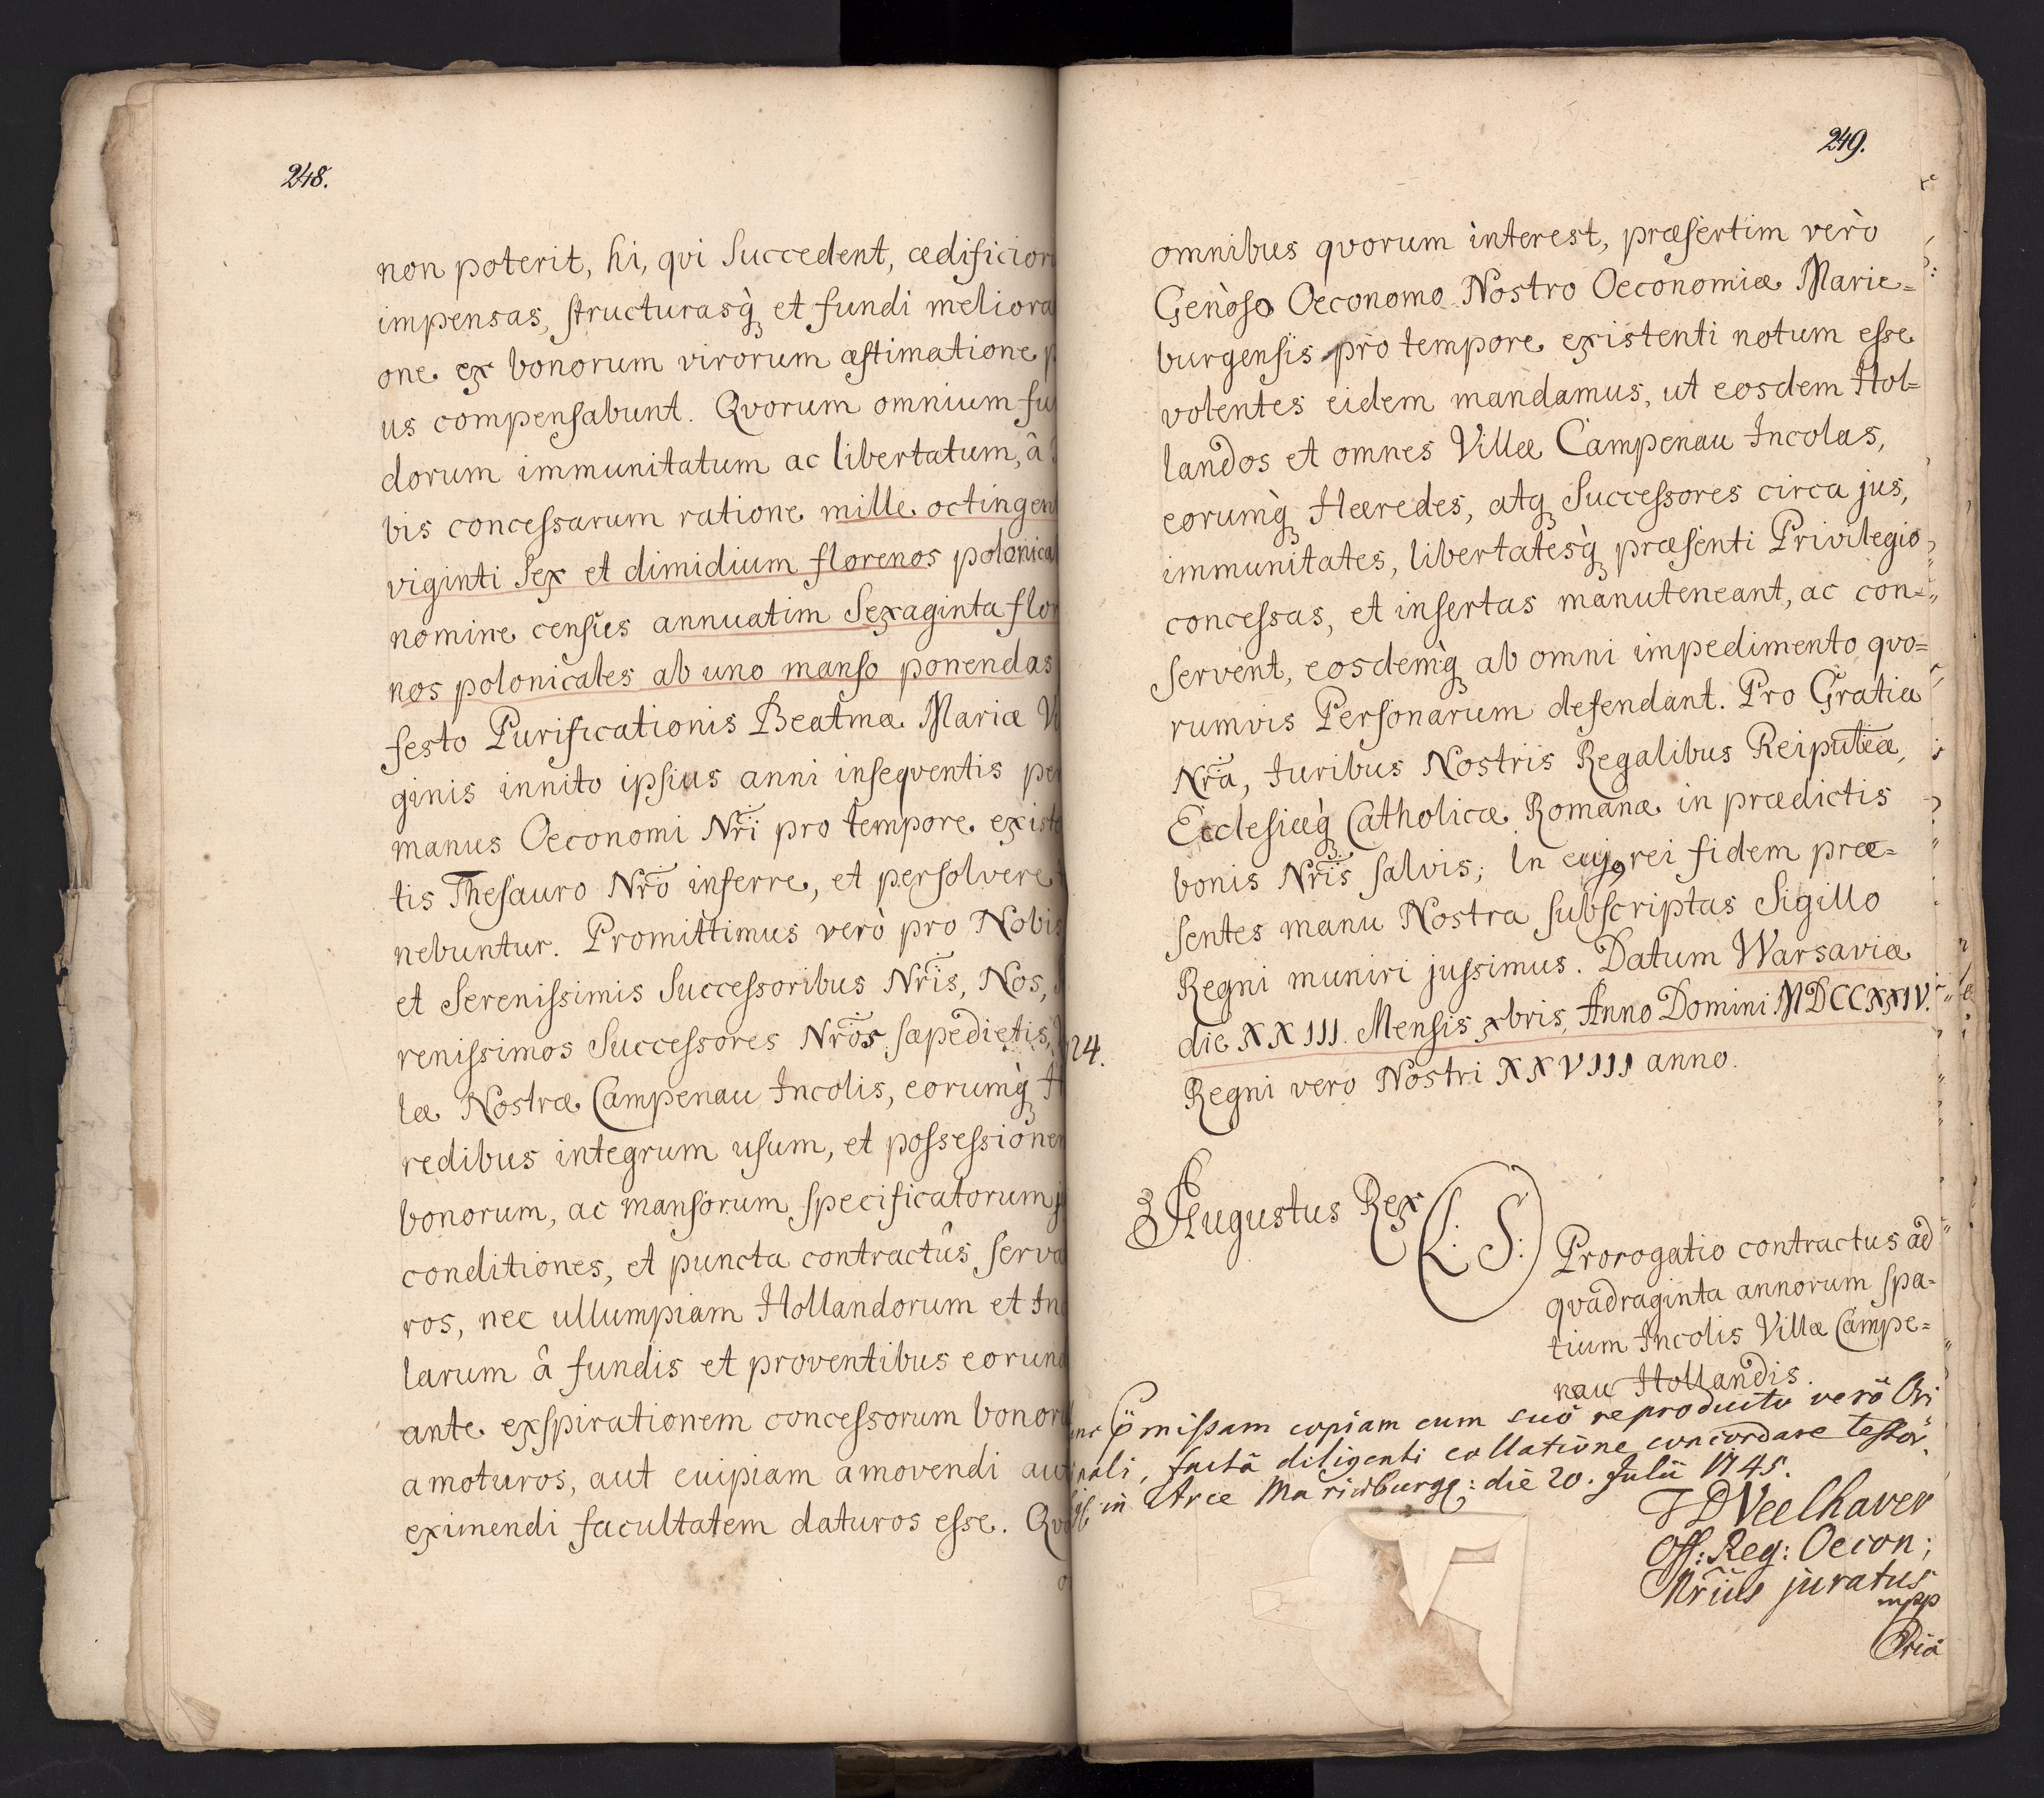 248.
non poterit, hi, qvi Succedent, ædificior
impensas, structurasq; et fundi meliora
one ex bonorum virorum æstimatione p
us compensabunt. Qvorum omnium fu
dorum immunitatum ac libertatum, â
bis concessarum ratione mille octingen
viginti Sex et dimidium florenos polonica
nomine census annuatim Sexaginta flor
nos polonicales ab uno manso ponendas
festo Purificationis Beatmæ Mariæ V
ginis innito ipsius anni inseqventis per
manus Oeconomi Nr̃i pro tempore existe
tis Thesauro Nr̃o inferre, et persolvere
nebuntur. Promittimus verò pro Nobis
et Serenissimis Successoribus Nr̃is, Nos,
renissimos Successores Nr̃os sæpedictis,
læ Nostræ Campenau Incolis, eorumq; H
redibus integrum usum, et possessionem
bonorum, ac mansorum specificatorum
conditiones, et puncta contractûs serva
ros, nec ullumpiam Hollandorum et Inc
larum â fundis et proventibus eorund
ante exspirationem concessorum bonor
amoturos, aut cuipiam amovendi aut
eximendi facultatem daturos esse. Qvo
249.
omnibus qvorum interest, præsertim verò
Genòso Oeconomo Nostro Oeconomiæ Marie=
burgensis prò tempore existenti notum esse
volentes eidem mandamus, ut eosdem Hol=
landos et omnes Villæ Campenau Incolas,
eorumq; Hæredes, atq; Successores circa jus,
immunitates, libertatesq; præsenti Privilegio
concessas, et insertas manuteneant, ac con=
servent, eosdemq; ab omni impedimento qvo=
rumvis Personarum defendant. Pro Gratia
Nr̃a, Iuribus Nostris Regalibus Reiputicæ,
Ecclesiæq; Catholicæ Romanæ in prædictis
bonis Nr̃is salvis; In cujꝯ rei fidem præ=
sentes manu Nostra subscriptas Sigillo
Regni muniri jussimus. Datum Warsaviæ
die XXIII. Mensis xbris, Anno Domini MDCCXXIV.
24.
Regni vero Nostri XXVIII anno.
Augustus Rex (L: S:)
Prorogatio contractus ad
qvadraginta annorum spa=
tium Incolis Villæ Campe=
nau Hollandis.
p̈missam copiam cum suo reproducto verö Ori
nali, factâ diligenti collatione concordare testor.
in Arce Mariæburgq: die 20. Julii 1745.
J D Veelhaver
Off: Reg: Oecon:
Nr̃ius juratus
mpp